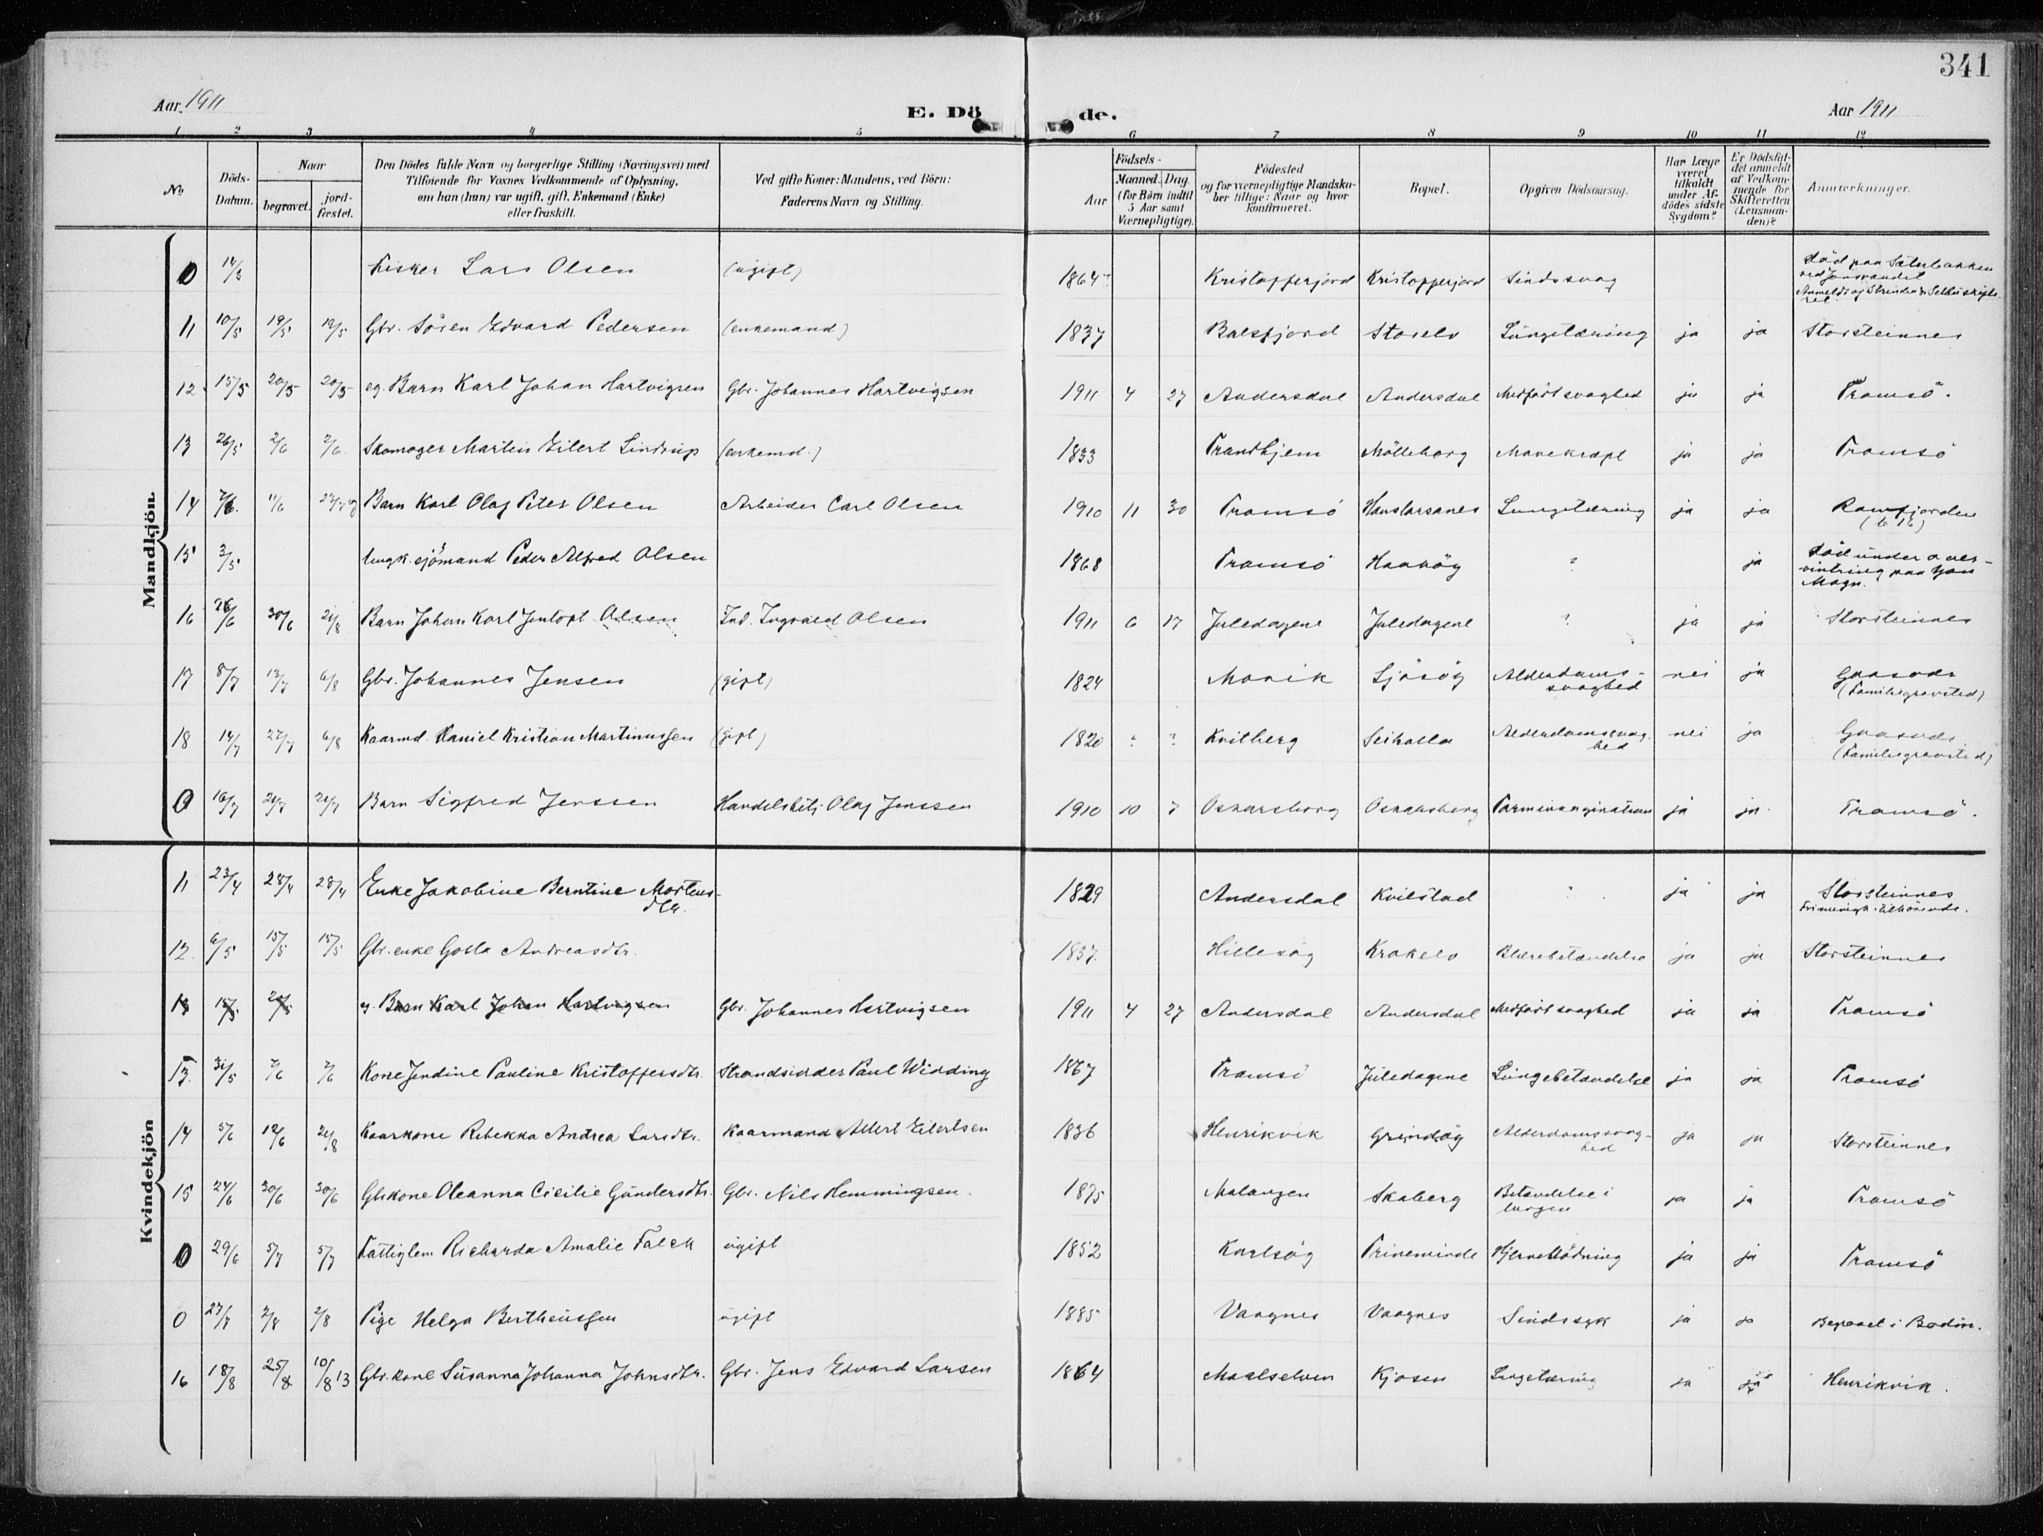 341
Aar 1911 E. Dö de. Aar 1911
1 2 3 4 5 6 7 8 9 10 11 12
No
Döds-Datum.
Naar
begravet.
jord-fæstet.
Den Dödes fulde Navn og borgerlige Stilling (Næringsvei) med
Tilföiende for Voxnes Vedkommende af Oplysning,
om han (hun) var ugift, gift, Enkemand (Enke)
eller fraskilt.
Ved gifte Koner: Mandens, ved Börn:
Faderens Navn og Stilling.
Födsels-
Aar
Maaned. Dag
(for Börn indtil
5 Aar samt
Værnepligtige).
Födested
og for værnepligtige Mandska-
ber tillige: Naar og hvor
konfirmeret.
Bopæl.
Opgiven Dödsaarsag.
Har Læge
været
tilkaldt
under Af-
dödes sidste
Sygdom?
Er Dödsfal-
det anmeldt
af Vedkom-
mende for
Skifteretten
(Lensman-
den)?
Anmerkninger.
Mandkjön.
0 14/5 Fisker Lars Olsen (ugift) 1864 Kristofferjord Kristofferjord Sindssvag
11 10/5 19/5 19/5 Gbr. Sören Edvard Pedersen (enkemand) 1837 Balsfjord Storelv Lungetæring ja ja Storsteinnes
12 15/5 20/5 20/5 eg. Barn Karl Johan Hartvigsen Gbr. Johannes Hartvigsen 1911 4 27 Andersdal Andersdal Medfört svaghed ja ja Tromsö.
13 26/5 2/6 2/6 Skomager Martin Eilert Lindrup (enkemd.) 1833 Trondhjem Mölleborg Mavekræft ja ja Tromsö
14 7/6 11/6 Barn Karl Olaf Peter Olsen Arbeider Carl Olsen 1910 11 30 Tromsö Hanslarsanes Lungetæring ja ja Ramfjorden
15 3/5 Ungk. sjömand Peder Alfred Olsen 1868 Tromsö Haaköy ? ja Död under over-
vintring paa Jan
Mayn.
16 26/6 30/6 21/8 Barn Johan Karl Jentoft Olsen Ind. Ingvald Olsen 1911 6 17 Juledagene Juledagene ? ja ja Storsteinnes
17 8/7 13/7 6/8 Gbr. Johannes Jensen (gift) 1824 Movik Sjösög Alderdoms-
svaghed nei ja
(Familiegravsted)
18 14/7 27/7 6/8 Kaarmd. Daniel Kristian Martinussen (gift) 1820 ? ? Kvitberg Seihalla Alderdomssvag-
hed nei ja
(Familiegravsted)
0 16/7 21/7 21/7 Barn Sigfred Jenssen Handelsbetj. Olaf Jenssen 1910 10 7 Oskarsborg Oskarsborg Tarminvagination ja ja Tromsö.
Kvindekjön
11 23/4 28/4 28/4 Enke Jakobine Berntine Mortens-
dtr. 1829 Andersdal Kvilstad ? ja ja Storsteinnes
12 6/5 15/5 15/5 Gbr. enke Golla Andreasdtr. 1837 Hillesög Krokelv Blærebetændelse ja ja Storsteinnes
13 15/5 20/5 eg. Barn Karl Johan Hartvigsen Gbr. Johannes Hartvigsen 1911 4 27 Andersdal Andersdal Medfört svaghed ja ja Tromsö
13. 31/5 7/6 7/6 Kone Jendine Pauline Kristoffersdtr. Strandsidder Paul Widding 1867 Tromsö Juledagene Lungebetændelse ja ja Tromsö
14 5/6 12/6 21/8 Kaarkone Rebekka Andrea Larsdtr. Kaarmand Albert Eilertsen 1836 Henrikvik Grindög Alderdomssvag-
hed ja ja Storsteinnes
15 24/6 30/6 30/6 Gbrkone Oleanna Cicilie Gundersdtr. Gbr. Nils Hemmingsen. 1875 Malangen Skaberg Betændelse i
ja ja Tromsö
0 29/6 5/7 5/7 Fattiglem Richarda Amalie Falck ugift 1852 Karlsög Trineminde Hjerneblödning ja ja Tromsö
0 27/7 2/8 2/8 Pige Helga Bertheussen ugift 1885 Vaagnes Vaagnes Sindssyk ja ja Begravet i Bodin.
16 18/8 25/8 10/8 13 Gbr.kone Susanna Johanna Johnsdtr. Gbr. Jens Edvard Larsen 1864 Maalselven Kjosen Lungetæring ja ja Henrikvik.